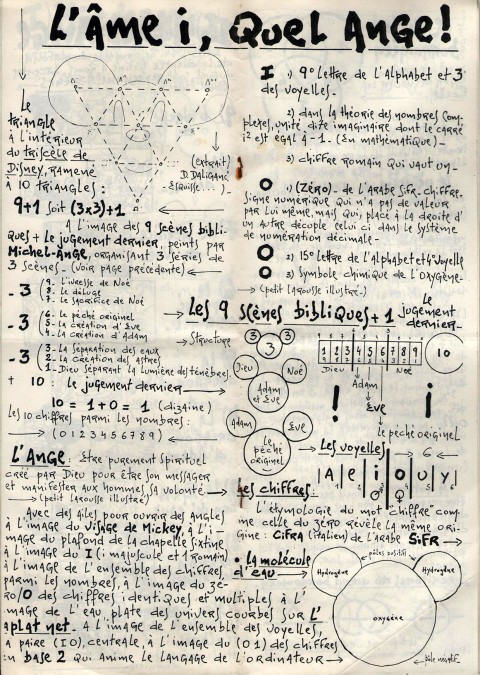 L'Âme i, Quel Ange!
Le
triangle
à l'intérieur
du triscèle de
Disney, ramené
à 10 triangles:
9+1 soit (3x3)+1
(extrait)
D. Daligand
(Esquisse...)
À l'image des 9 scènes bibli-
ques + le jugement dernier, peints par
Michel-Ange, organisant 3 séries de
3 scènes. (voir page précédente)
- 3
9. L'ivresse de Noé
8. Le déluge
7. Le sacrifice de Noé
- 3
6. Le péché originel
5. La création d'Ève
4. La création d'Adam
- 3
3. La séparation des eaux
2. La création des astres
1. Dieu séparant la lumière des ténèbres.
+ 10: Le jugement dernier
10 = 1+0 = 1 (dizaine)
Les 10 chiffres parmi les nombres:
(0 1 2 3 4 5 6 7 8 9)
L'Ange: Être purement spirituel
créé par Dieu pour être son messager
et manifester aux hommes sa volonté
(petit larousse illustré)
Avec des ailes pour ouvrir des angles
à l'image du visage de Mickey, à l'i-
mage du plafond de la chapelle sixtine
à l'image du I (i majuscule et 1 romain)
à l'image de l'ensemble des chiffres
parmi les nombres, à l'image du zé-
ro/O des chiffres identiques et multiples à l'
image de l'eau plate des univers courbes sur l'
aplat net. À l'image de l'ensemble des voyelles,
a paire (I O), centrale, à l'image du (0 1) des chiffres
en base 2 qui anime le langage de l'ordinateur
I 1) 9° lettre de l'alphabet et 3
des voyelles.
2) dans la théorie des nombres com-
plexes, unité dite imaginaire dont le carré
i² est égal à -1. (En mathématique)
3) chiffre romain qui vaut un.
O 1) (Zéro) - de l'arabe Sifr, chiffre.
Signe numérique qui n'a pas de valeur
par lui même, mais qui, placé à la droite d'
un autre décuple celui ci dans le système
de numération décimale.
O 2) 15° lettre de l'alphabet et 4° voyelle
O 3) Symbole chimique de l'oxygène.
(petit larousse illustré)
Les 9 scènes bibliques + 1 Le
jugement
dernier
Structure
3
3
3
Dieu
Noé
Adam
et Ève
Adam
Ève
Le
péché
originel
1 2 3 4 5 6 7 8 9
10
Dieu
Noé
Adam
Ève
Le péché originel
!
i
Les voyelles
6
A e i O U Y
♂ ♀
Les chiffres:
L'étymologie du mot chiffre com-
me celle du zéro révèle la même ori-
gine: Cifra (italien) de l'arabe SiFR
la molécule
d'eau
pôles positif
Hydrogène
Hydrogène
oxygène
pôle négatif